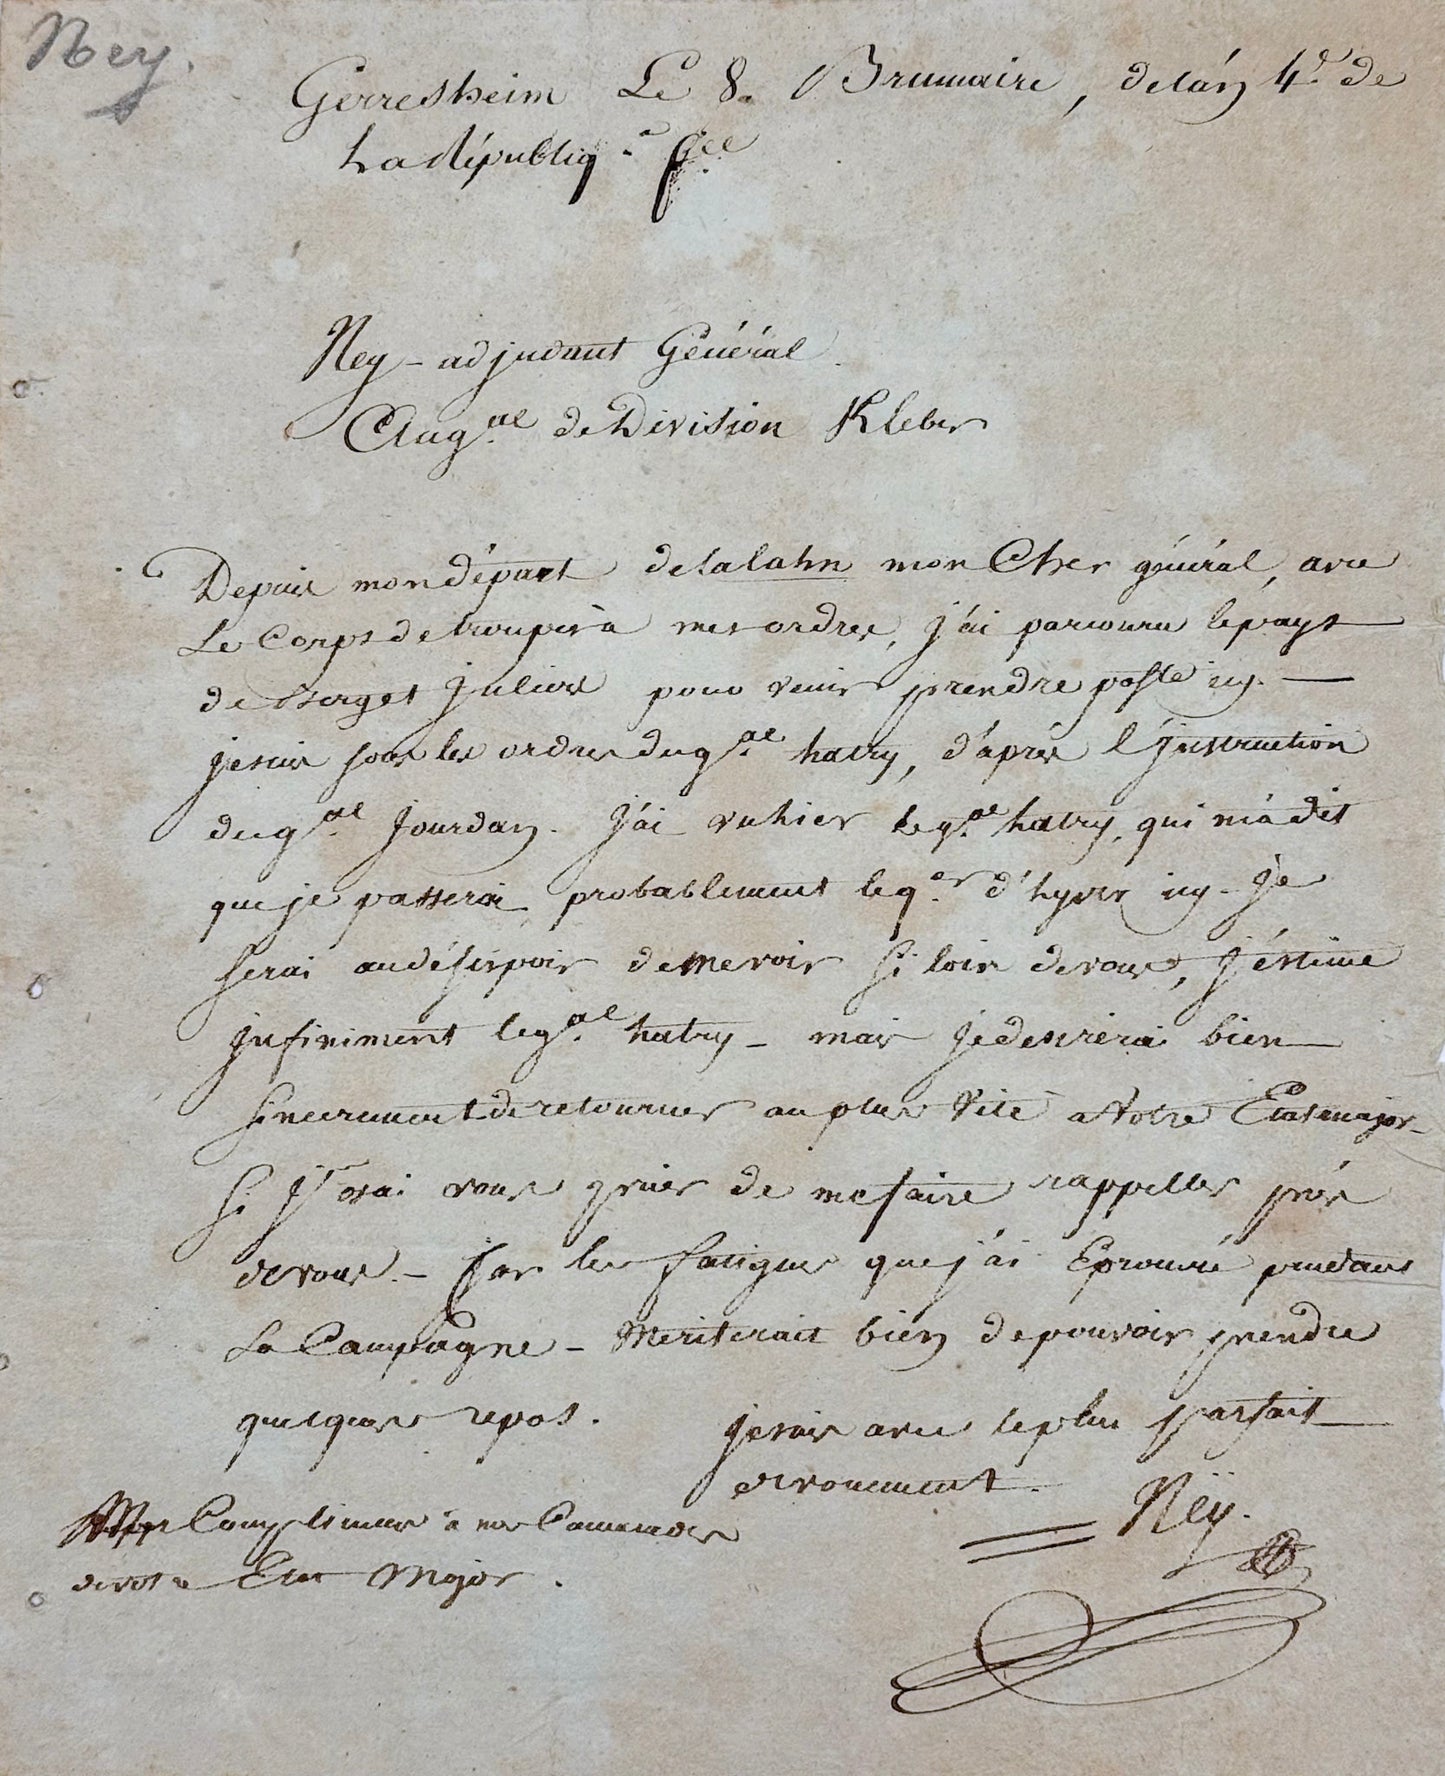 Ney.
Gerresheim Le 8. Brumaire, de l'an 4.e de
La Républiq.e f.ce
Ney - adjudant Général
Au g.al de Division Kleber
Depuis mon départ de la lahn mon Cher général, avec
Le Corps de troupes à mes ordres, j'ai parcouru le pays
de Berg et Juliers pour venir prendre poste icy. —
je suis sous les ordres du g.al hatry, d'après l'jnstruction
du g.al Jourdan. J'ai vu hier le g.al hatry, qui m'a dit
que je passerai probablement le q.er d'hyver icy - Je
serai au désespoir de me voir si loin de vous, j'éstime
jnfiniment le g.al hatry - mais je desirerai bien
sincerement de retourner au plus vite a votre Etat major -
si j'osai vous prier de me faire rappeller près
de vous. - Car les fatigues que j'ai Eprouvé pendant
La Campagne - Meriterait bien de pouvoir prendre
quelques repos.
je suis avec le plus parfait
devouement.
Neÿ.
Mes Complimens à mes Camarades
de votre Etat Major.